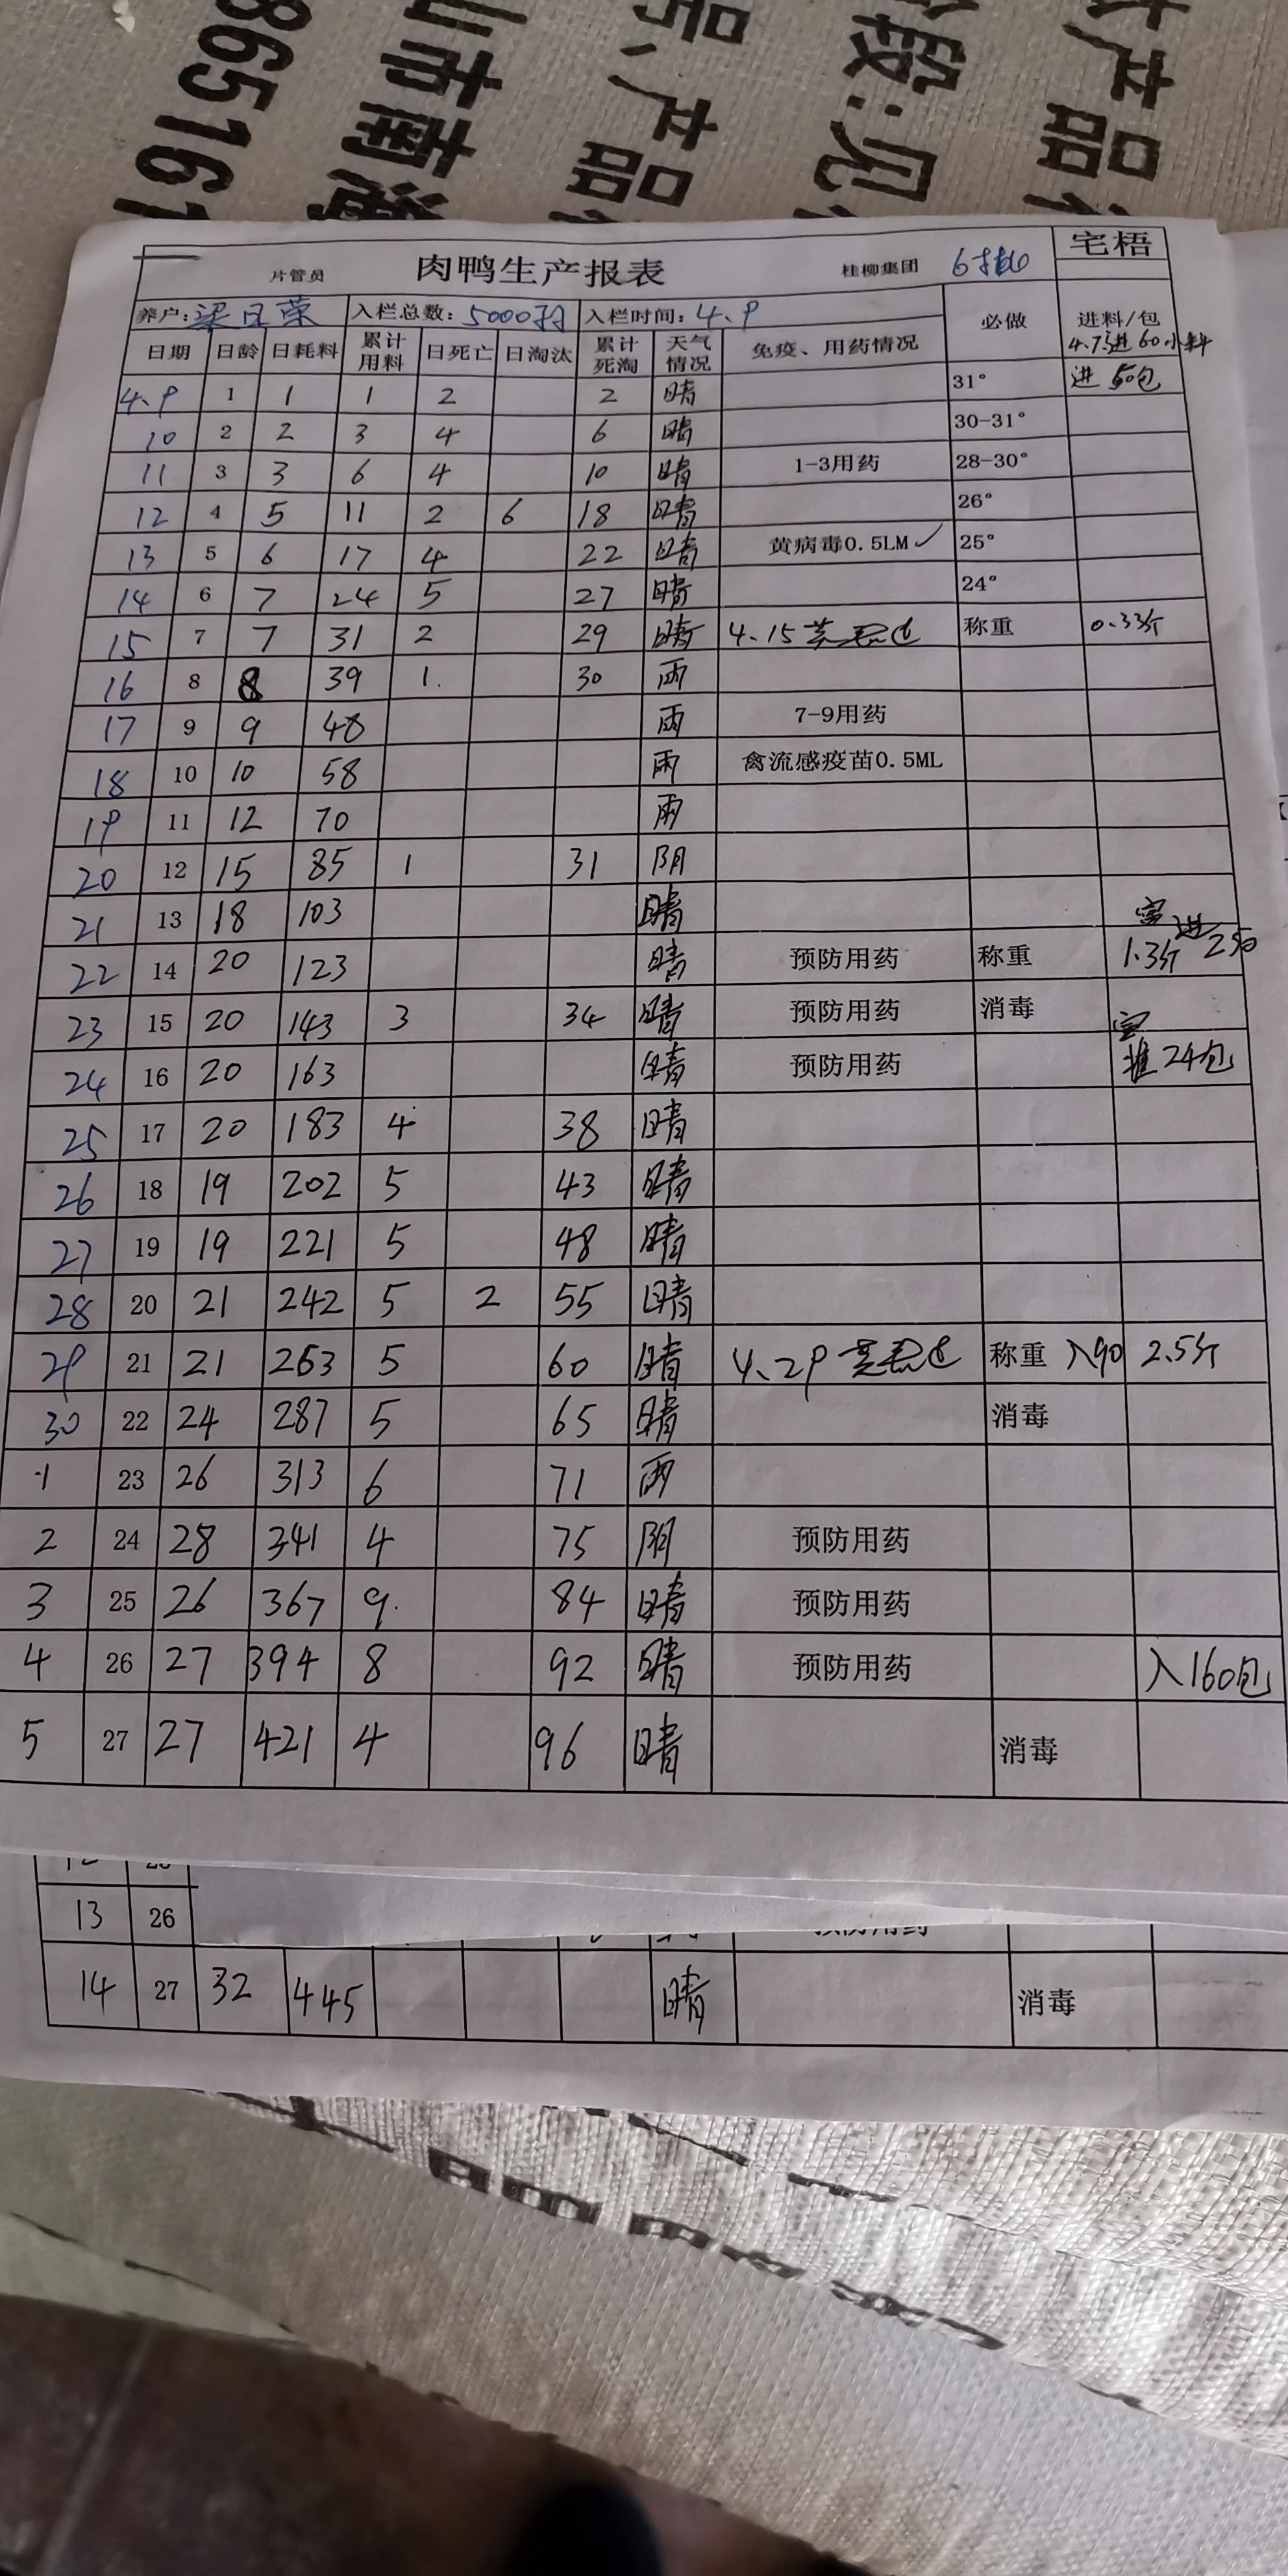 865161
山市南海
号、产品
段:见
产品
宅梧
片管员 肉鸭生产报表 桂柳集团 6批
养户: 梁 荣 入栏总数: 5000羽 入栏时间: 4.9 必做 进料/包
4.7进60小料
日期 日龄 日耗料 累计用料 日死亡 日淘汰 累计死淘 天气情况 免疫、用药情况
4.9 1 1 1 2 2 晴 31° 进50包
10 2 2 3 4 6 晴 30-31°
11 3 3 6 4 10 晴 1-3用药 28-30°
12 4 5 11 2 6 18 晴 26°
13 5 6 17 4 22 晴 黄病毒0.5LM✓ 25°
14 6 7 24 5 27 晴 24°
15 7 7 31 2 29 晴 4.15 称重 0.33斤
16 8 8 39 1. 30 雨
17 9 9 48 雨 7-9用药
18 10 10 58 雨 禽流感疫苗0.5ML
19 11 12 70 雨
20 12 15 85 1 31 阴
21 13 18 103 晴
22 14 20 123 晴 预防用药 称重 1.3斤 进250
23 15 20 143 3 34 晴 预防用药 消毒
24 16 20 163 晴 预防用药 24包
25 17 20 183 4 38 晴
26 18 19 202 5 43 晴
27 19 19 221 5 48 晴
28 20 21 242 5 2 55 晴
29 21 21 263 5 60 晴 4.29 称重 入90 2.5斤
30 22 24 287 5 65 晴 消毒
1 23 26 313 6 71 雨
2 24 28 341 4 75 阴 预防用药
3 25 26 367 9. 84 晴 预防用药
4 26 27 394 8 92 晴 预防用药 入160包
5 27 27 421 4 96 晴 消毒
13 26 预防用药
14 27 32 445 晴 消毒